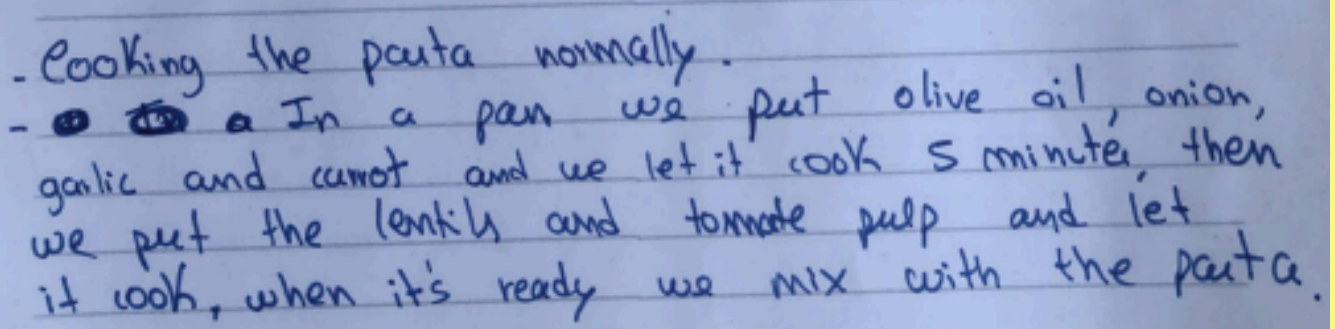 - Cooking the pasta normally.
- In a pan we put olive oil, onion,
garlic and carrot and we let it cook 5 minutes, then
we put the lentils and tomate pulp and let
it cook, when it's ready we mix with the pasta.